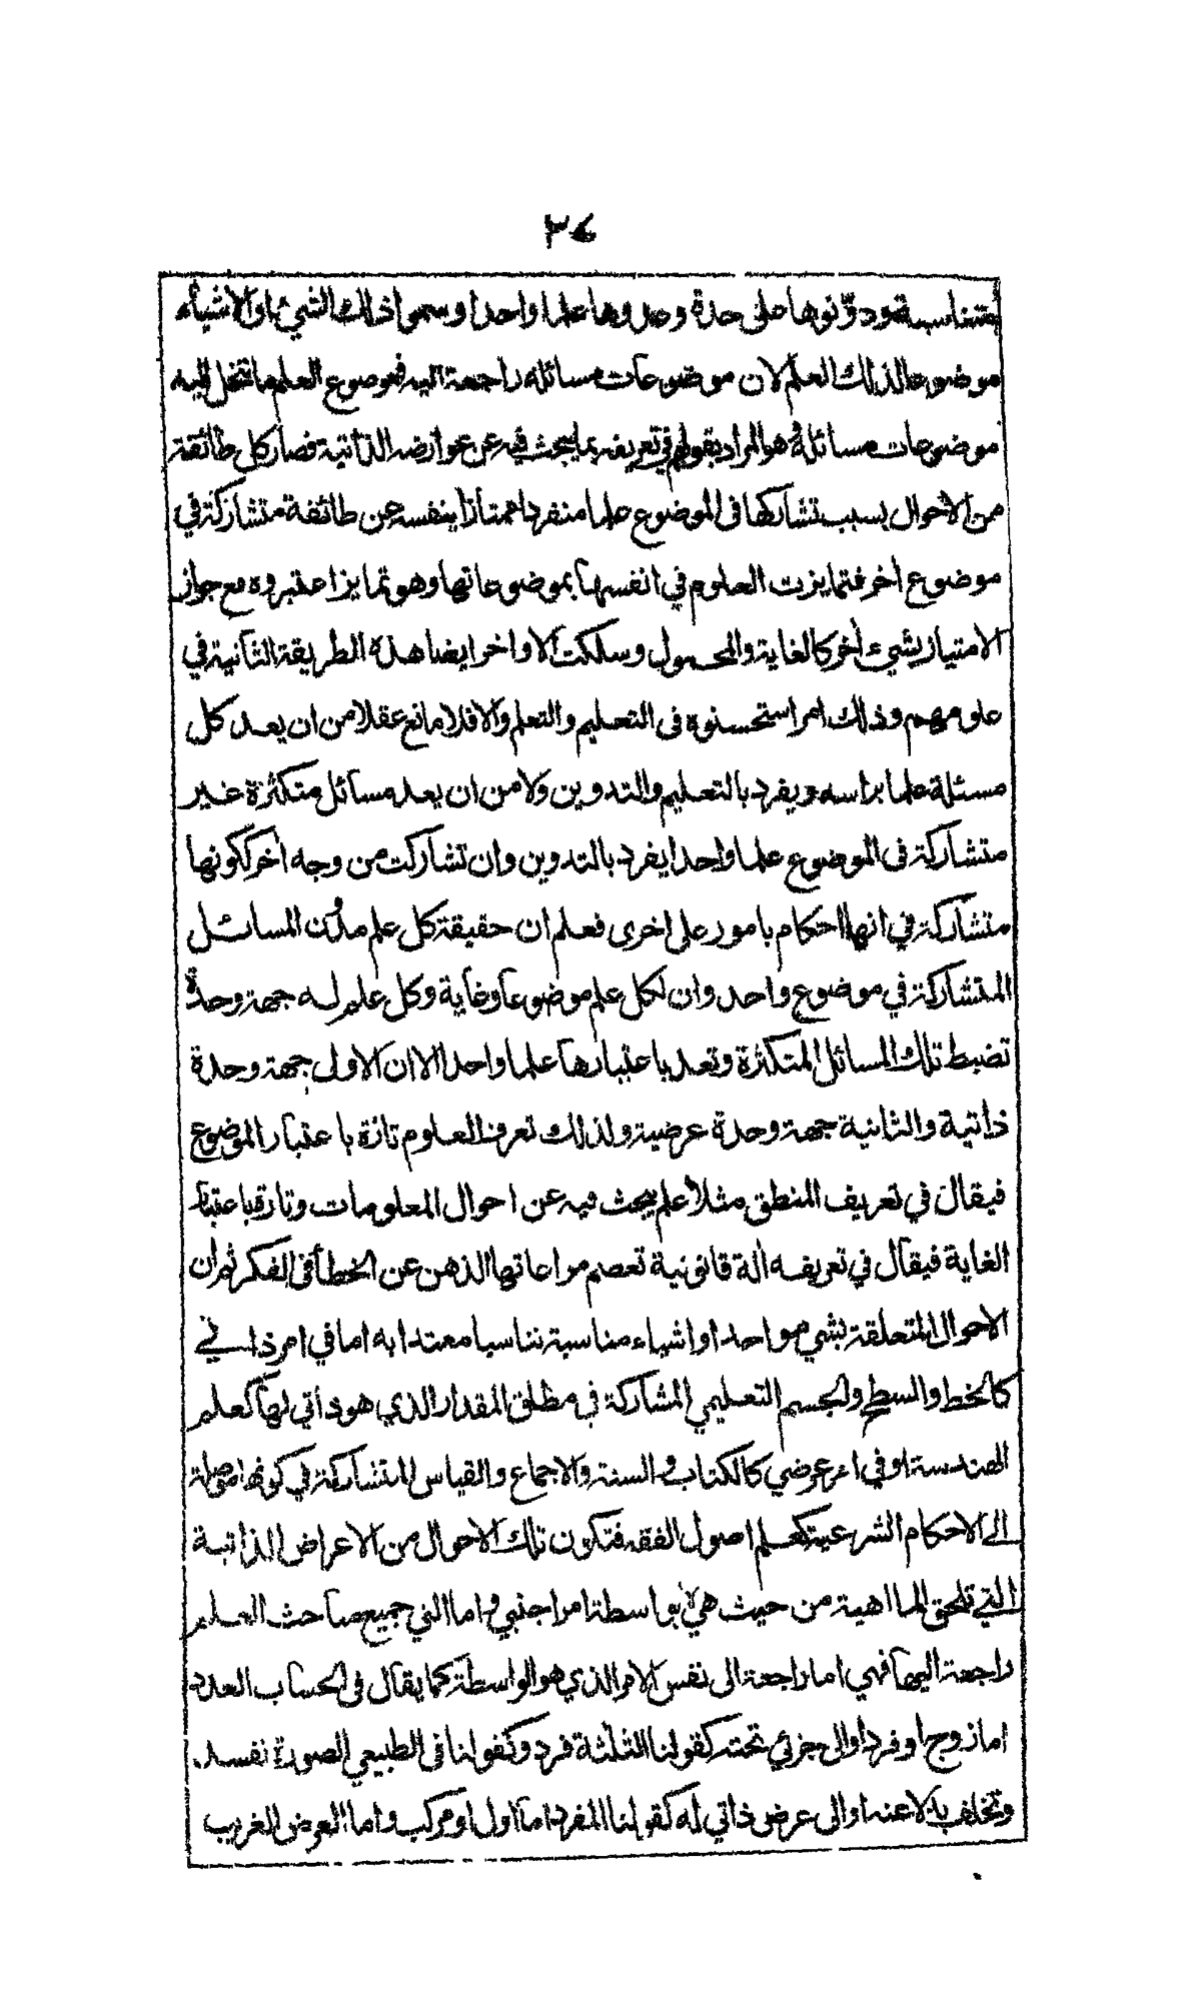 ٣٤
متناسبة ودوّنوها على حدة وعدوها علما واحدا وسموا ذلك الشيء او الاشياء
موضوعا لذلك العلم لان موضوعات مسائله راجعة اليه فموضوع العلم ما تنحل اليه
موضوعات مسائله وهو المراد بقولهم في تعريفه بما يبحث فيه عن عوارضه الذاتية فصار كل طائفة
من الاحوال بسبب تشاركها فى الموضوع علما منفردا ممتازا بنفسه عن طائفة متشاركة في
موضوع اخر فتمايزت العلوم في انفسها بموضوعاتها وهو تمايز اعتبروه مع جواز
الامتياز بشيء اخر كالغاية والمحمول وسلكت الاواخر ايضا هذه الطريقة الثانية في
علومهم وذلك امر استحسنوه فى التعليم والتعلم والا فلا مانع عقلا من ان يعد كل
مسئلة علما براسه ويفرد بالتعليم والتدوين ولا من ان يعد مسائل متكثرة غير
متشاركة فى الموضوع علما واحدا يفرد بالتدوين وان تشاركت من وجه اخر ككونها
متشاركة في انها احكام بامور على اخرى فعلم ان حقيقة كل علم مدون المسائل
المتشاركة في موضوع واحد وان لكل علم موضوعا وغاية وكل علم له جهة وحدة
تضبط تلك المسائل المتكثرة وتعد باعتبارها علما واحدا الا ان الاول جهة وحدة
ذاتية والثانية جهة وحدة عرضية ولذلك تعرف العلوم تارة باعتبار الموضوع
فيقال في تعريف المنطق مثلا علم يبحث فيه عن احوال المعلومات وتارة باعتبار
الغاية فيقال في تعريفه الة قانونية تعصم مراعاتها الذهن عن الخطأ فى الفكر ثم ان
الاحوال المتعلقة بشيء واحد او اشياء مناسبة تناسبا معتدا به اما في امر ذاتي
كالخط والسطح والجسم التعليمي المشاركة في مطلق المقدار الذي هو ذاتي لها كعلم
الهندسة او في امر عرضي كالكتاب والسنة والاجماع والقياس المتشاركة في كونها موصلة
الى الاحكام الشرعية كعلم اصول الفقه فتكون تلك الاحوال من الاعراض الذاتية
التي تلحق الماهية من حيث هي لا بواسطة امر اجنبي واما التي جميع مباحث العلم
راجعة اليها فهي اما راجعة الى نفس الامر الذي هو الواسطة كما يقال فى الحساب العدد
اما زوج او فرد او الى جزئي تحته كقولنا الثلثة فرد وكقولنا فى الطبيعي الصورة تفسد
وتخلف بدلا عنه او الى عرض ذاتي له كقولنا المفرد اما اول او مركب واما العرض الغريب